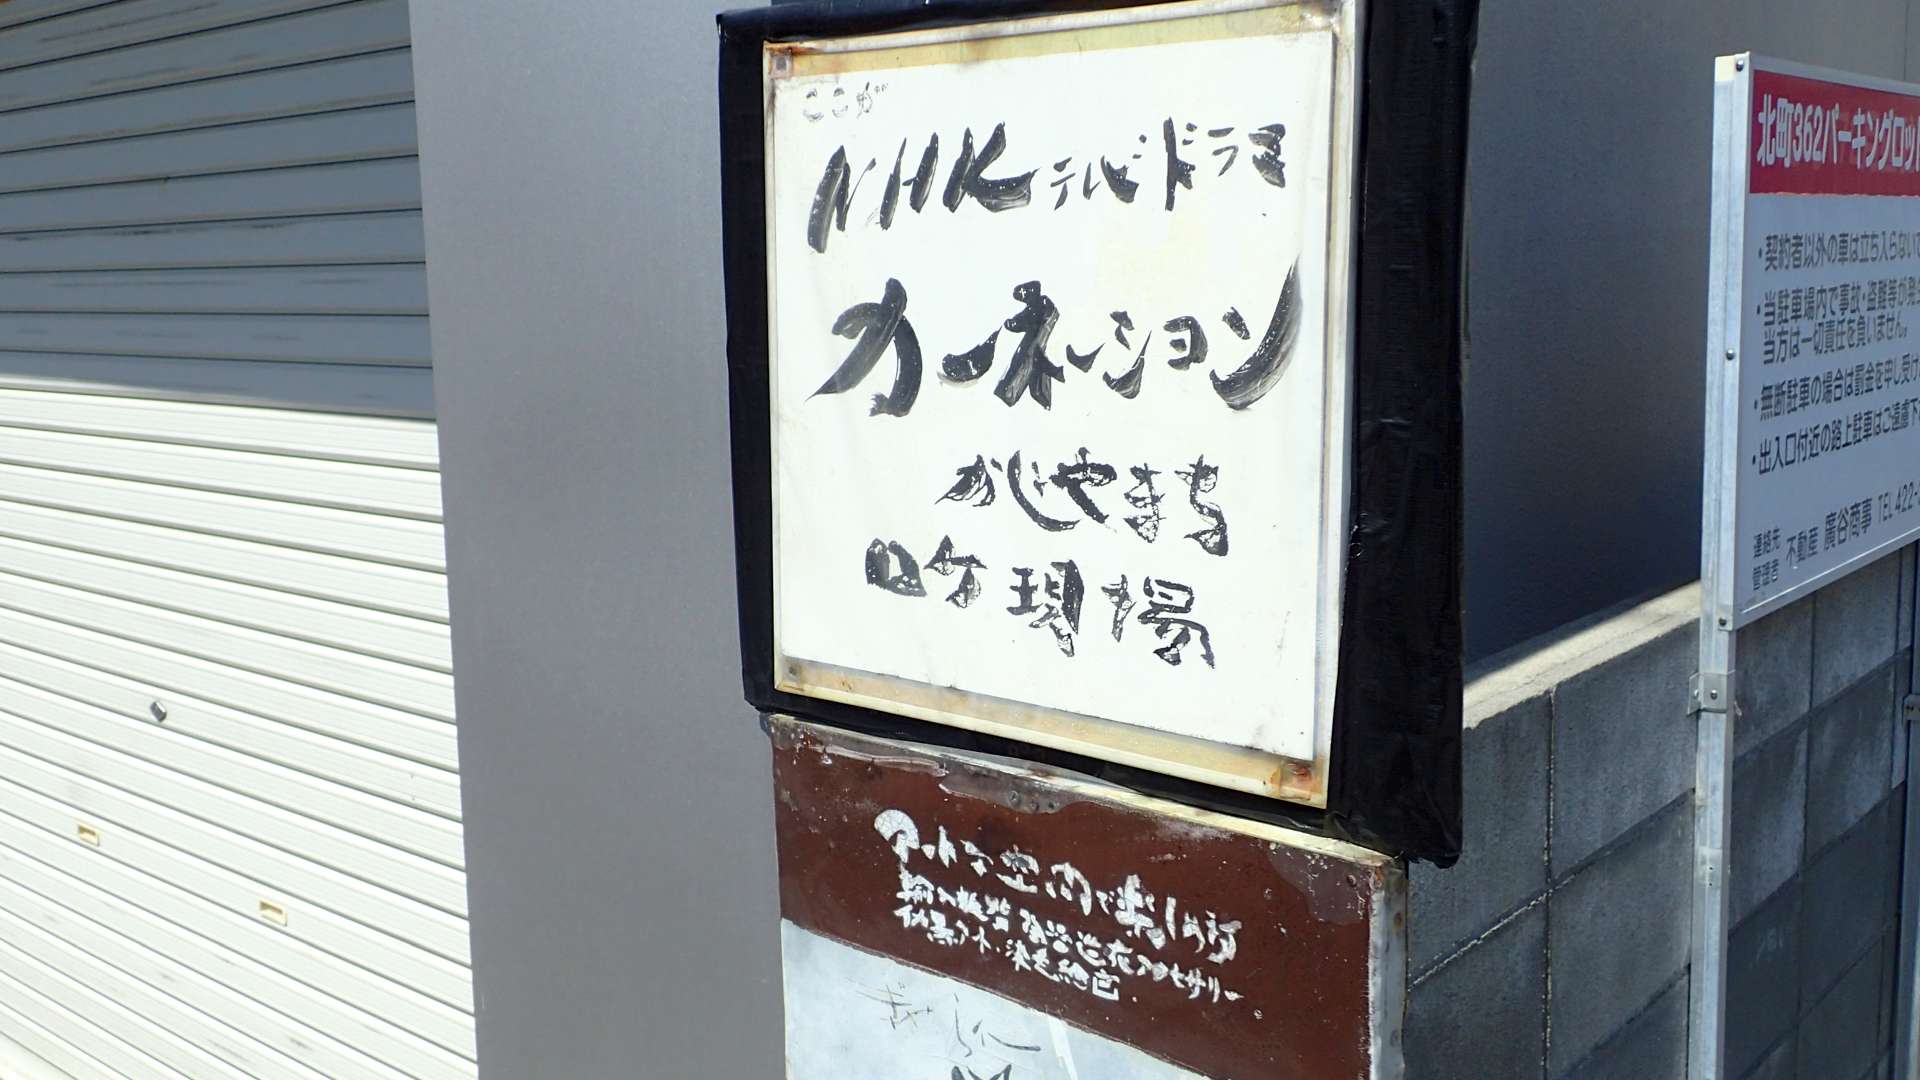 ここが
NHKテレビドラマ
カーネーション
かじやまち
ロケ現場
アートな空間で楽しめる
アクセサリー
ぎゃらりー
北町362パーキングロット
・契約者以外の車は立ち入らないで
・当駐車場内で事故・盗難等が発生
当方は一切責任を負いません。
・無断駐車の場合は罰金を申し受け
・出入口付近の路上駐車はご遠慮下
連絡先
管理者
不動産 廣谷商事 TEL 422-